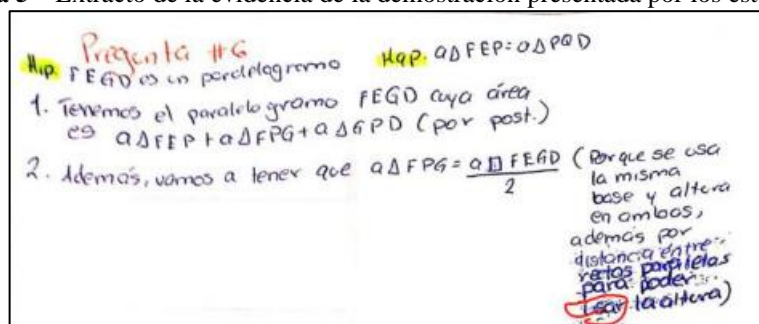 a 5 Extracto de la evidencia de la demostración presentada por los est
Pregunta #6
Hip. FEGD es un paralelogramo Hqp. a△FEP = a△PQD
1. Tenemos el paralelogramo FEGD cuya área
es a△FEP + a△FPG + a△GPD (por post.)
2. Además, vamos a tener que a△FPG = a▱FEGD / 2 (Porque se usa
la misma
base y altura
en ambos,
además por
distancia entre
rectas paralelas
para poder
usar la altura)